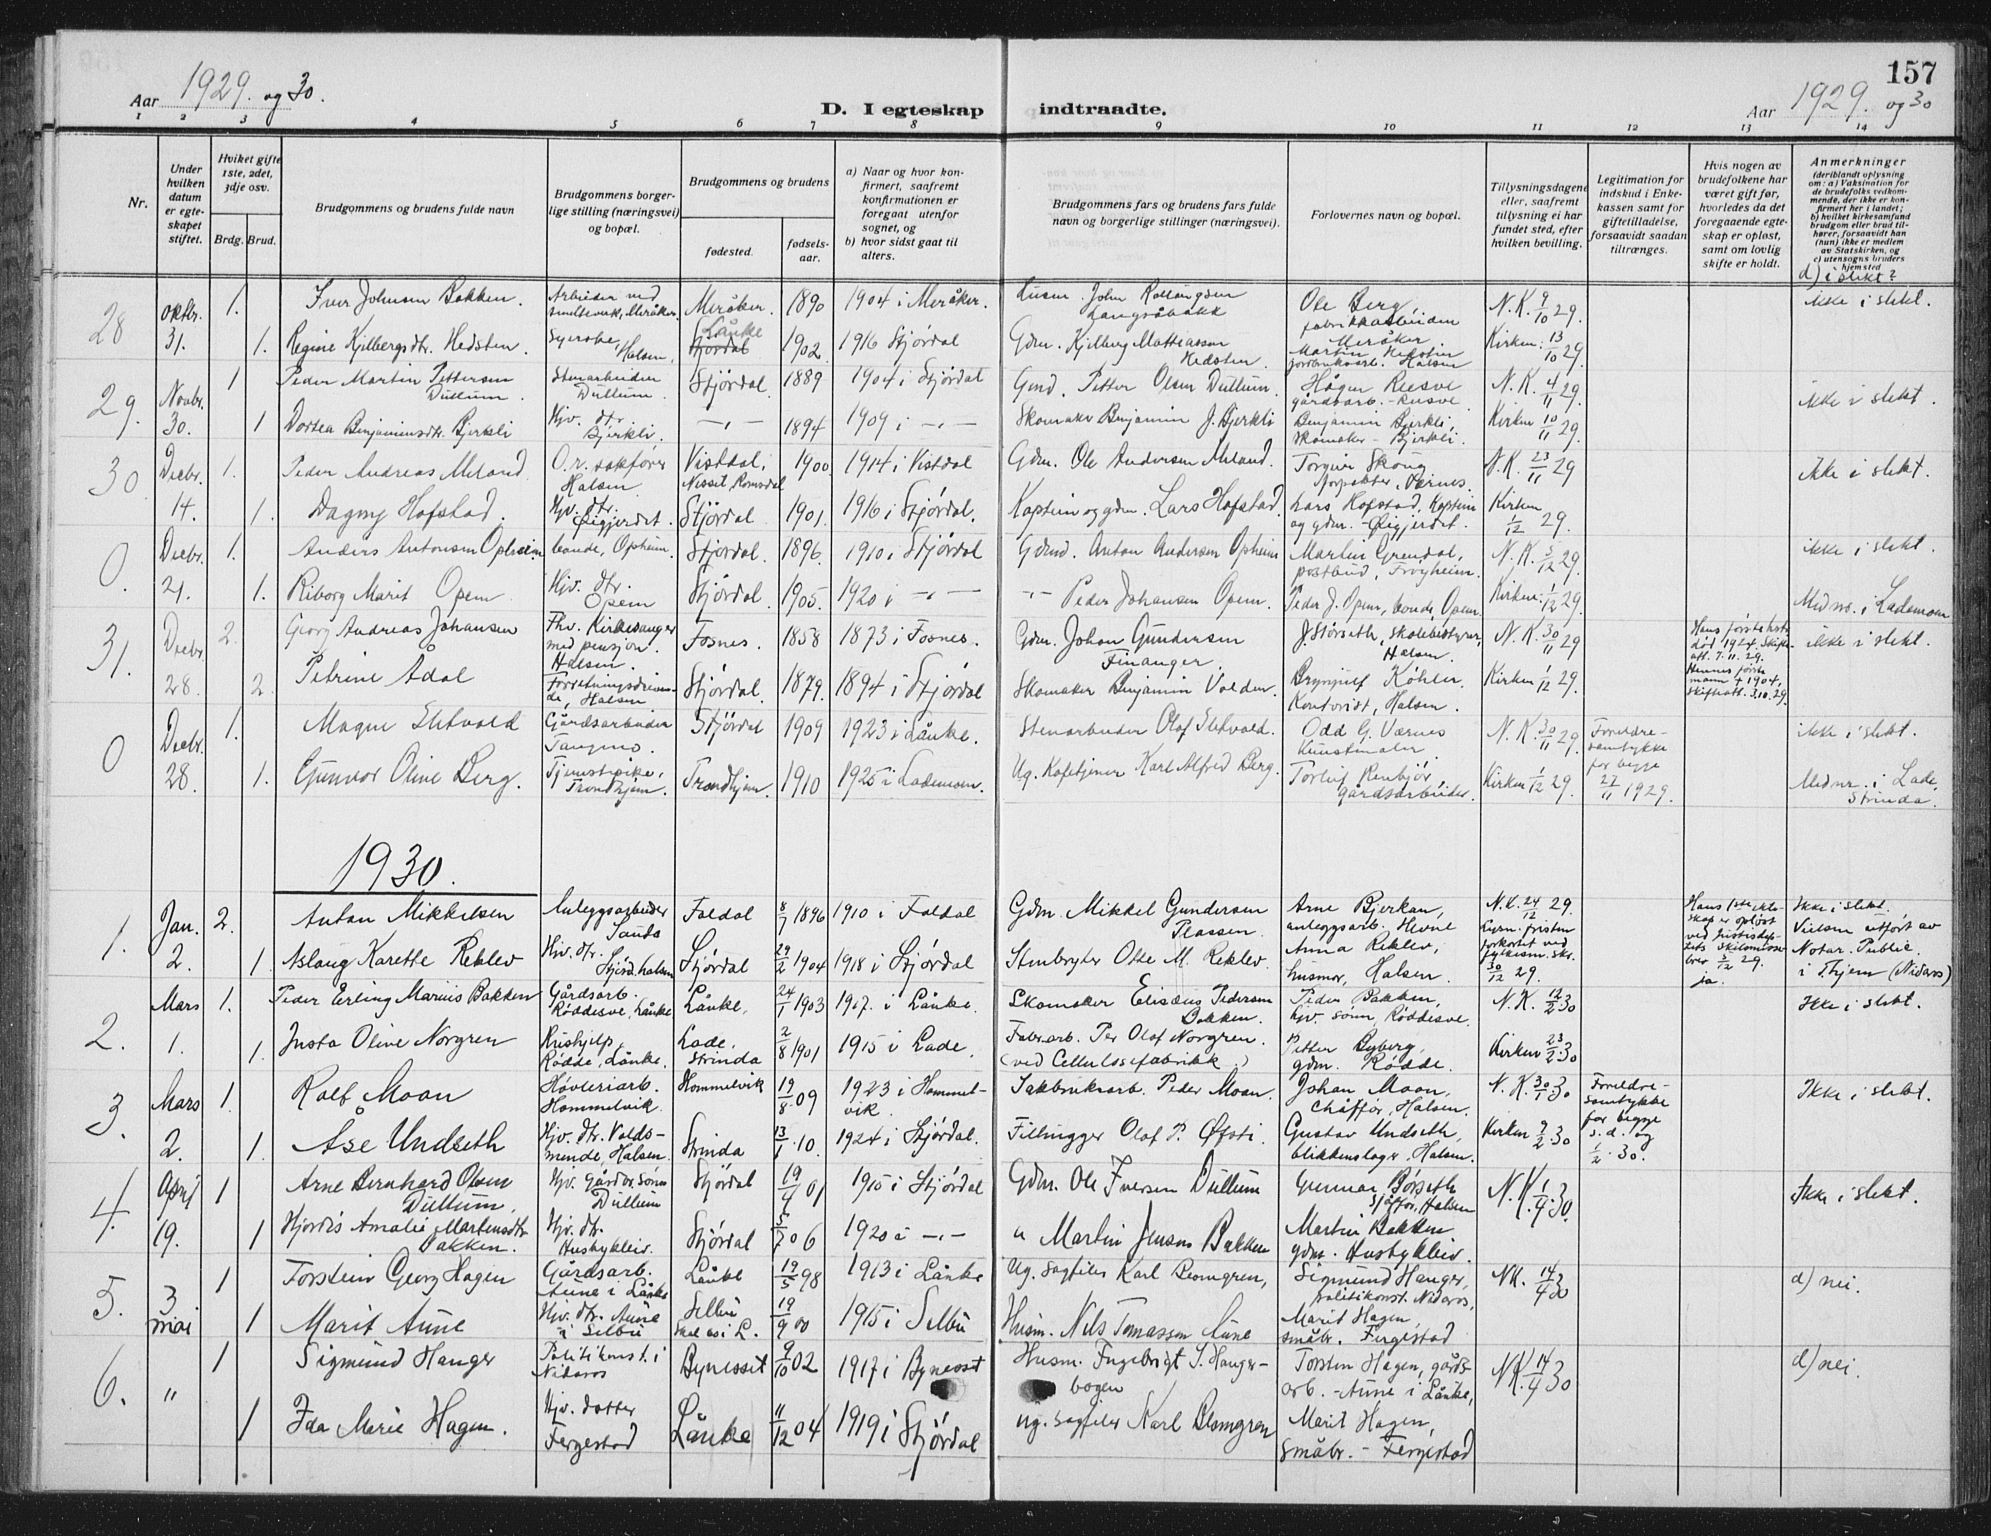 157
Aar 1929. og 30.
D. I egteskap indtraadte.
Aar 1929. og 30
1 2 3 4 5 6 7 8 9 10 11 12 13 14
Nr.
Under hvilken datum er egteskapet stiftet.
Hvilket gifte 1ste, 2det, 3dje osv.
Brdg. Brud.
Brudgommens og brudens fulde navn
Brudgommens borgerlige stilling (næringsvei) og bopæl.
Brudgommens og brudens
fødested.
fødselsaar.
a) Naar og hvor konfirmert, saafremt konfirmationen er foregaat utenfor sognet, og
b) hvor sidst gaat til alters.
Brudgommens fars og brudens fars fulde navn og borgerlige stillinger (næringsvei).
Forlovernes navn og bopæl.
Tillysningsdagene eller, saafremt tillysning ei har fundet sted, efter hvilken bevilling.
Legitimation for indskud i Enkekassen samt for giftetilladelse, forsaavidt saadan tiltrænges.
Hvis nogen av brudefolkene har været gift før, hvorledes da det foregaaende egteskap er opløst, samt om lovlig skifte er holdt.
Anmerkninger (deriblandt oplysning om: a) Vaksination for de brudefolks vedkommende, der ikke er konfirmert her i landet; b) hvilket kirkesamfund brudgom eller brud tilhører, forsaavidt han (hun) ikke er medlem av Statskirken, og c) utensogns bruders hjemsted
d) i slekt?
28 oktbr. 1. Iver Johnsen Bakken. Arbeider ved smelteverk, Meråker. Meråker. 1890 1904 i Meråker. John Ole Berg, fabrikkarbeider Meråker N.K. 9/10 29. ikke i slekt.
31. 1. Regine Kjelbergsdtr. Hedsten. Syerske, Halsen. Stjørdal Lånke 1902. 1916 Stjørdal Gdm. Kjelberg Mattiassen Hedsten. Martin Hedsten Halsen Kirken: 13/10 29.
29. Novbr. 1 Peder Martin Pettersen Dullum. Stenarbeider Dullum. Stjørdal. 1889 1904 i Stjørdal Gmd. Petter Olsen Dullum. Hågen Reesve gårdsarb. - Reesve N.K. 4/11 29. ikke i slekt.
30. 1 Dortea Benjaminsdtr. Bjerkli Hjv. dtr. Bjerkli. -„- 1894 1909 i -„- Skomaker Benjamin J. Bjerkli Benjamin Bjerkli, skomaker - Bjerkli. Kirken 10/11 29.
30. Decbr. 1. Peder Andreas Meland O.r. sakfører Halsen Vistdal i Nesset, Romsdal 1900. 1914 i Vistdal Gdm. Ole Andersen Meland. Torgeir Skoug Værnes. N.K. 23/11 29 ikke i slekt.
14. 1. Dagny Hofstad. Hjv. dtr. Øigjerdet. Stjørdal 1901. 1916 i Stjørdal. Kaptein og gdm. Lars Hofstad. Lars Hofstad, Kaptein og gdm. - Øigjerdet. Kirken 1/12 29.
0. Decbr. 1. Anders Antonsen Opheim bonde, Opheim. Stjørdal. 1896. 1910 i Stjørdal Gdmd. Anton Andersen Opheim Martin Grendal, postbud, Frøyheim. N.K. 5/12 29. ikke i slekt.
21. 1. Riborg Marit Opem Hjv. dtr. Opem Stjørdal. 1905. 1920 i -„- -„- Peder Johansen Opem. Peder J. Opem, bonde Opem. Kirken: 1/12 29. Medno. i Lademoen
31. Decbr. 2. Georg Andreas Johansen Fhv. Kirkesanger med pensjon. Halsen. Fosnes. 1858 1873 i Fosnes. Gdm. Johan Gundersen Finanger. J. Størseth, skolebestyrer, Halsen. N.K. 30/11 29 Hans første død 1924. Skifteatt. 7.11.29. Hennes første mann † 1904, skifteatt. 3.10.29. ikke i slekt.
28. 2. Petrine Ådal Forretningsdrivende, Halsen Stjørdal. 1879. 1894 i Stjørdal Skomaker Benjamin Valder. Brynjulf Köhler. Kontorist, Halsen. Kirken 1/12 29.
0 Decbr. 1. Magne Elstvold Gårdsarbeider Tangmo. Stjørdal 1909 1923 i Lånke. Stenarbeider Olaf Elstvold. Odd G. Værnes Kunstmaler N.K. 30/11 29. Foreldresamtykke for begge 27/11 1929. ikke i slekt.
28. 1. Gunvor Oline Berg. Tjenestepike, Trondhjem. Trondhjem. 1910 1925 i Lademoen. Ug. Kafetjener Karl Alfred Berg. Torleif Renbjør, gårdsarbeider. Kirken 1/12 29. Mednr. i Lade, Strinda.
1930.
1. Jan. 2. Anton Mikkelsen Anleggsarbeider Sauda Foldal 8/7 1896 1910 i Foldal Gdm. Mikkel Gundersen Plassen. Arne Bjerkan, anleggsarb. Hevne N.K. 24/12 29. Lysn. fristen forkortet ved fylkesm. skr. 30/12 29. Hans 1ste ekteskap er opløst ved Justisdep-tets skilsmissebrev 5/12 29. ja. Ikke i slekt. Vielsen utført av Notar. Public. i Thjem (Nidaros)
2. 1. Aslaug Karette Reklev Hjv. dtr. Stjørd.halsen Stjørdal 29/2 1904 1918 i Stjørdal Stenbryter Otte M. Reklev. Anna Reklev, husmor, Halsen.
2. Mars 1. Peder Erling Marius Bakken Gårdsarb. Røddesve, Lånke Lånke, 24/1 1903 1917. i Lånke. Skomaker Elisæus Pedersen Bakken. Peder Bakken, hjv. sønn, Røddesve. N.K. 12/2 30 Ikke i slekt.
1. 1. Justa Oline Norgren Hushjelp Rødde, Lånke. Lade, Strinda 2/8 1901 1915 i Lade. Fabr.arb. Per Olof Norgren. (ved Cellulosefabrikk.) Petter Byberg, gdm. Rødde. Kirken 23/2 30
3. Mars 1. Rolf Moan Høvleriarb. Hommelvik. Hommelvik 19/8 09 1923 i Hommelvik. Sakbruksarb. Peder Moan. Johan Moan, Chåffør, Halsen. N.K. 30/1 30 Foreldresamtykke for begge s.d. og 1/2 30. Ikke i slekt.
2. 1. Åse Undseth Hjv. dtr. Voldsmende Halsen. Strinda 13/1 10. 1924 i Stjørdal. Fillugger Olaf P. Øfsti. Gustav Undseth, blikkenslager, Halsen. Kirken 9/2 30
4. April 1 Arne Bernhard Olsen Dullum. Hjv. Gårdbr. sønn Dullum Stjørdal 19/4 01 1915 i Stjørdal Gdm. Ole Iversen Dullum Gunnar Børseth sjåfør, Halsen N.K. 1/4 30. Ikke i slekt.
19. 1 Hjørdis Amalie Martensdtr Bakken. Hjv. dtr. Husbykleiv. Stjørdal 5/7 06 1920 i -„- „ Martin Jensen Bakken Martin Bakken gdm. Husbykleiv.
5. 3 mai 1 Torstein Georg Hagen Gårdsarb. Aune i Lånke Lånke 19/5 98 1913 i Lånke Ug. Sagfiler Karl Blomgren, Sigmund Hanger, politikonst. Nidaros, NK. 14/4 30 d) nei.
1 Marit Aune Hjv. dtr. Aune i Selbu Selbu 19/9 00 1915 i Selbu Husm. Nils Tomassen Aune Marit Hagen, småbr. Fergestad
6. " 1 Sigmund Hanger Politikonst. i Nidaros Bynesset 9/10 02 1917 i Byneset Husm. Ingebrigt S. Hangerbogen Torsten Hagen, gårdsarb. - Aune i Lånke, NK. 14/4 30 d) nei.
1 Ida Marie Hagen. Hjv. datter Fergestad Lånke 11/12 04 1919 i Stjørdal ug. Sagfiler Karl Blomgren Marit Hagen, småbr. - Fergestad